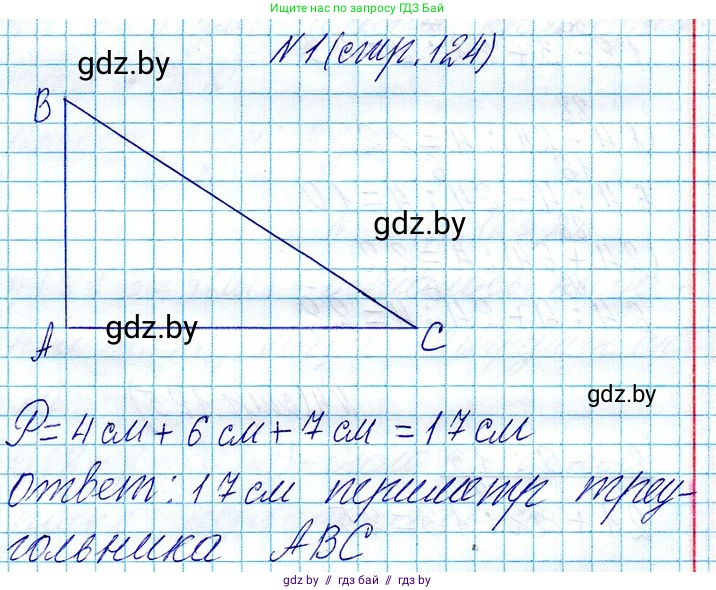 Ищите нас по запросу ГДЗ Бай
№1 (стр. 124)
gdz.by
B
gdz.by
gdz.by
A
C
gdz.by
P = 4 см + 6 см + 7 см = 17 см
ответ: 17 см периметр треу-
гольника ABC
gdz.by // гдз бай // gdz.by